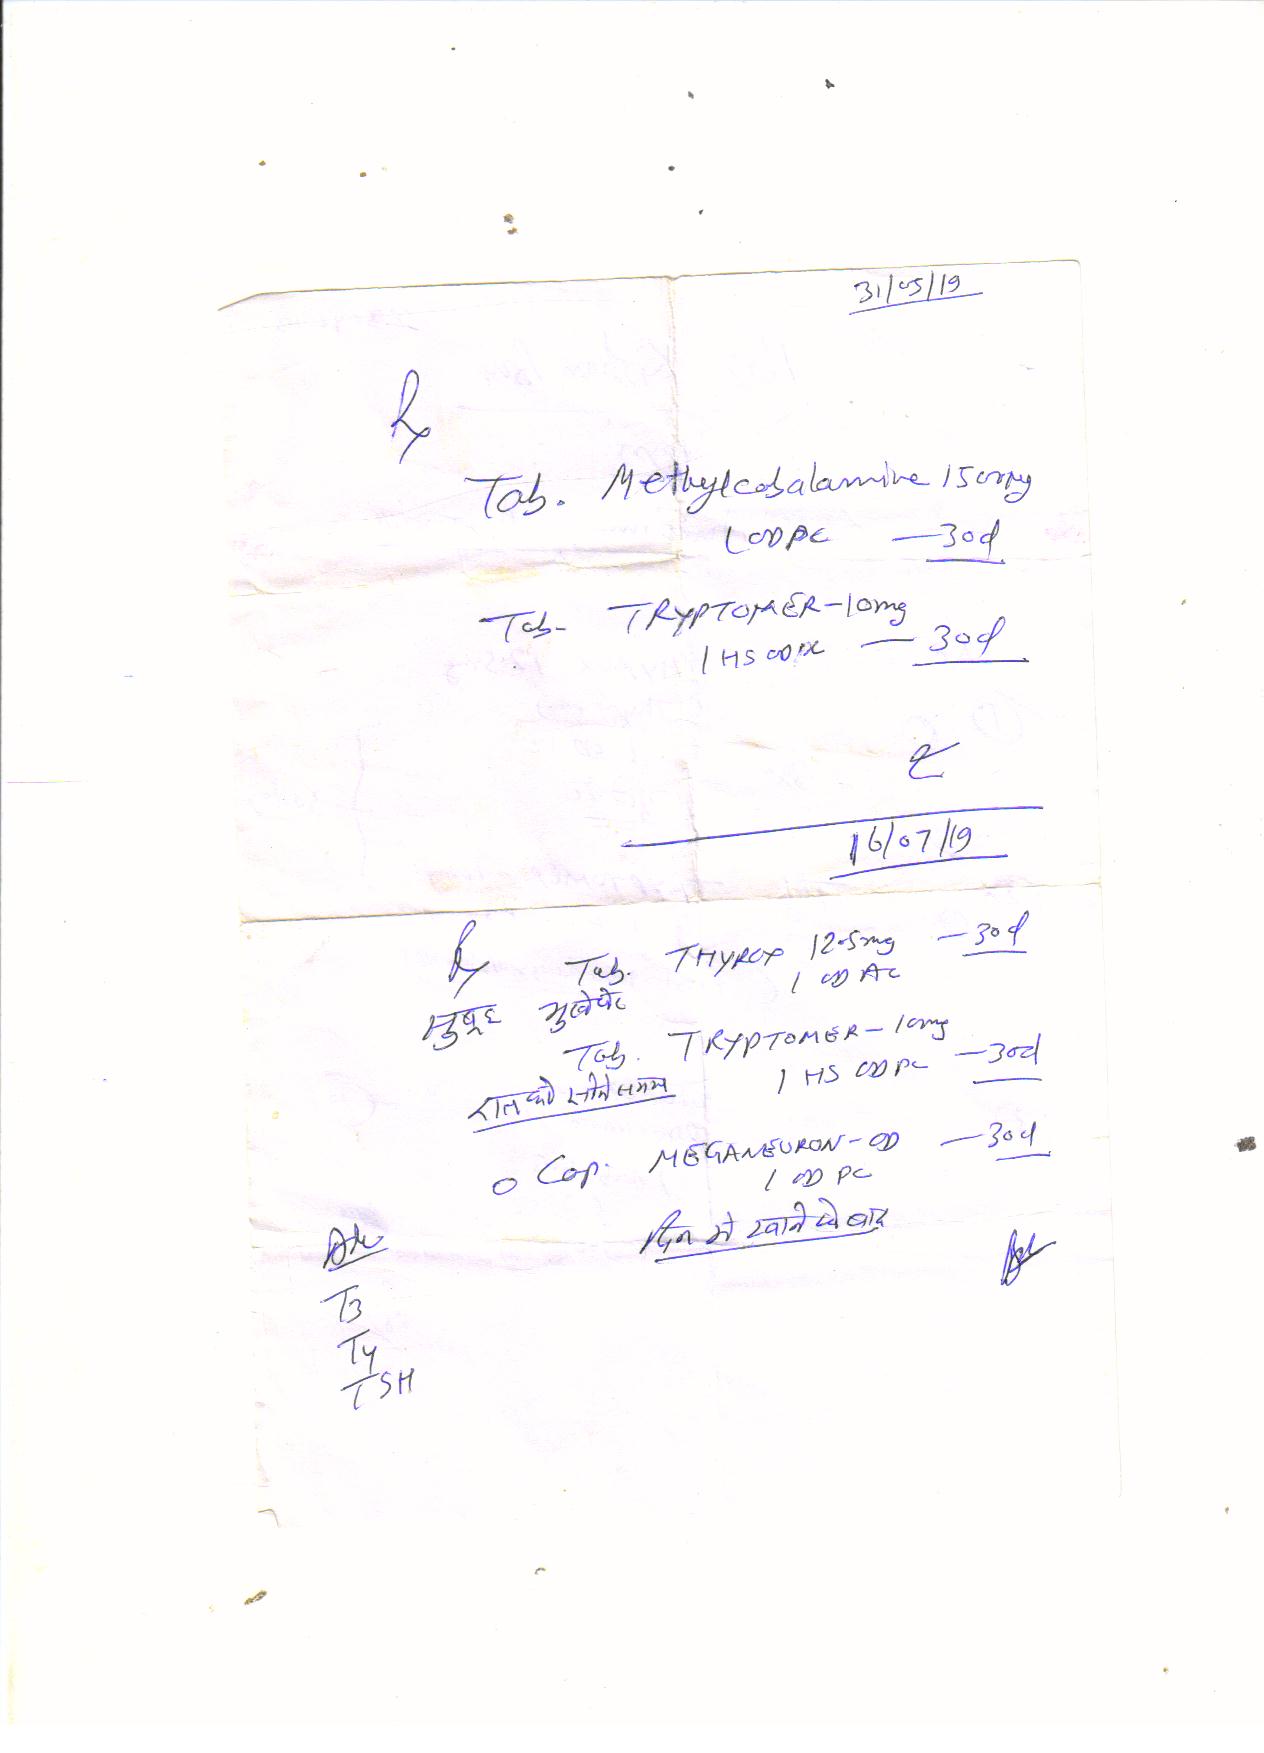 31/05/19
Rx
Tab. Methylcobalamine 1500mg
1 OD PC — 30d
Tab- TRYPTOMER-10mg
1 HS OD PC — 30d
16/07/19
Rx Tab. THYROX 12.5mg — 30d
1 OD AC
सुबह भुखे पेट
Tab. TRYPTOMER-10mg
1 HS OD PC — 30d
रात को सोते समय
Cap. MEGANEURON-OD — 30d
1 OD PC
दिन मे खाने के बाद
T3
T4
TSH